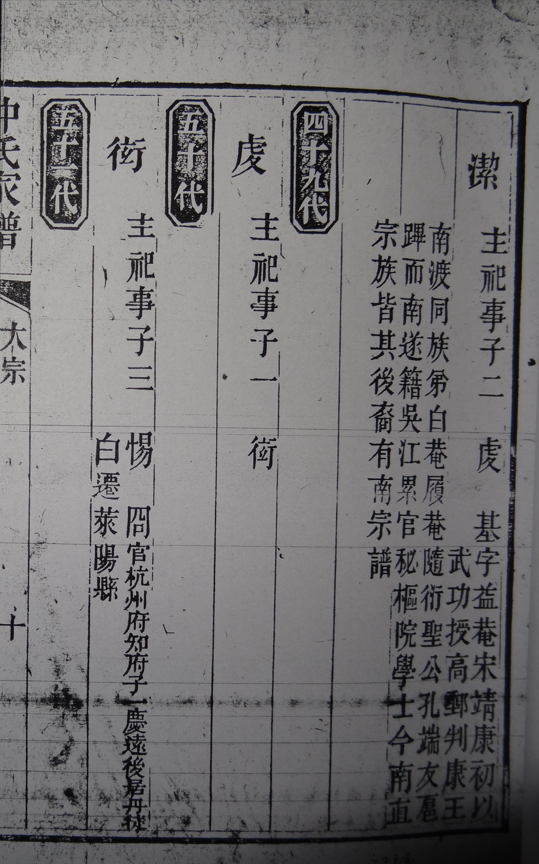 潔 主祀事子二 虔 基字益菴宋靖康初以
武功授高郵判康王
南渡同族弟白菴履菴隨衍聖公孔端友扈
蹕而南遂籍吳江累官秘樞院學士今南直
宗族皆其後裔有南宗譜
四十九代
虔 主祀事子一 衒
五十代
衒 主祀事子三 惕 冏官杭州府知府子一慶遠後居丹
白遷萊陽縣
五十一代
仲氏家譜 大宗 十